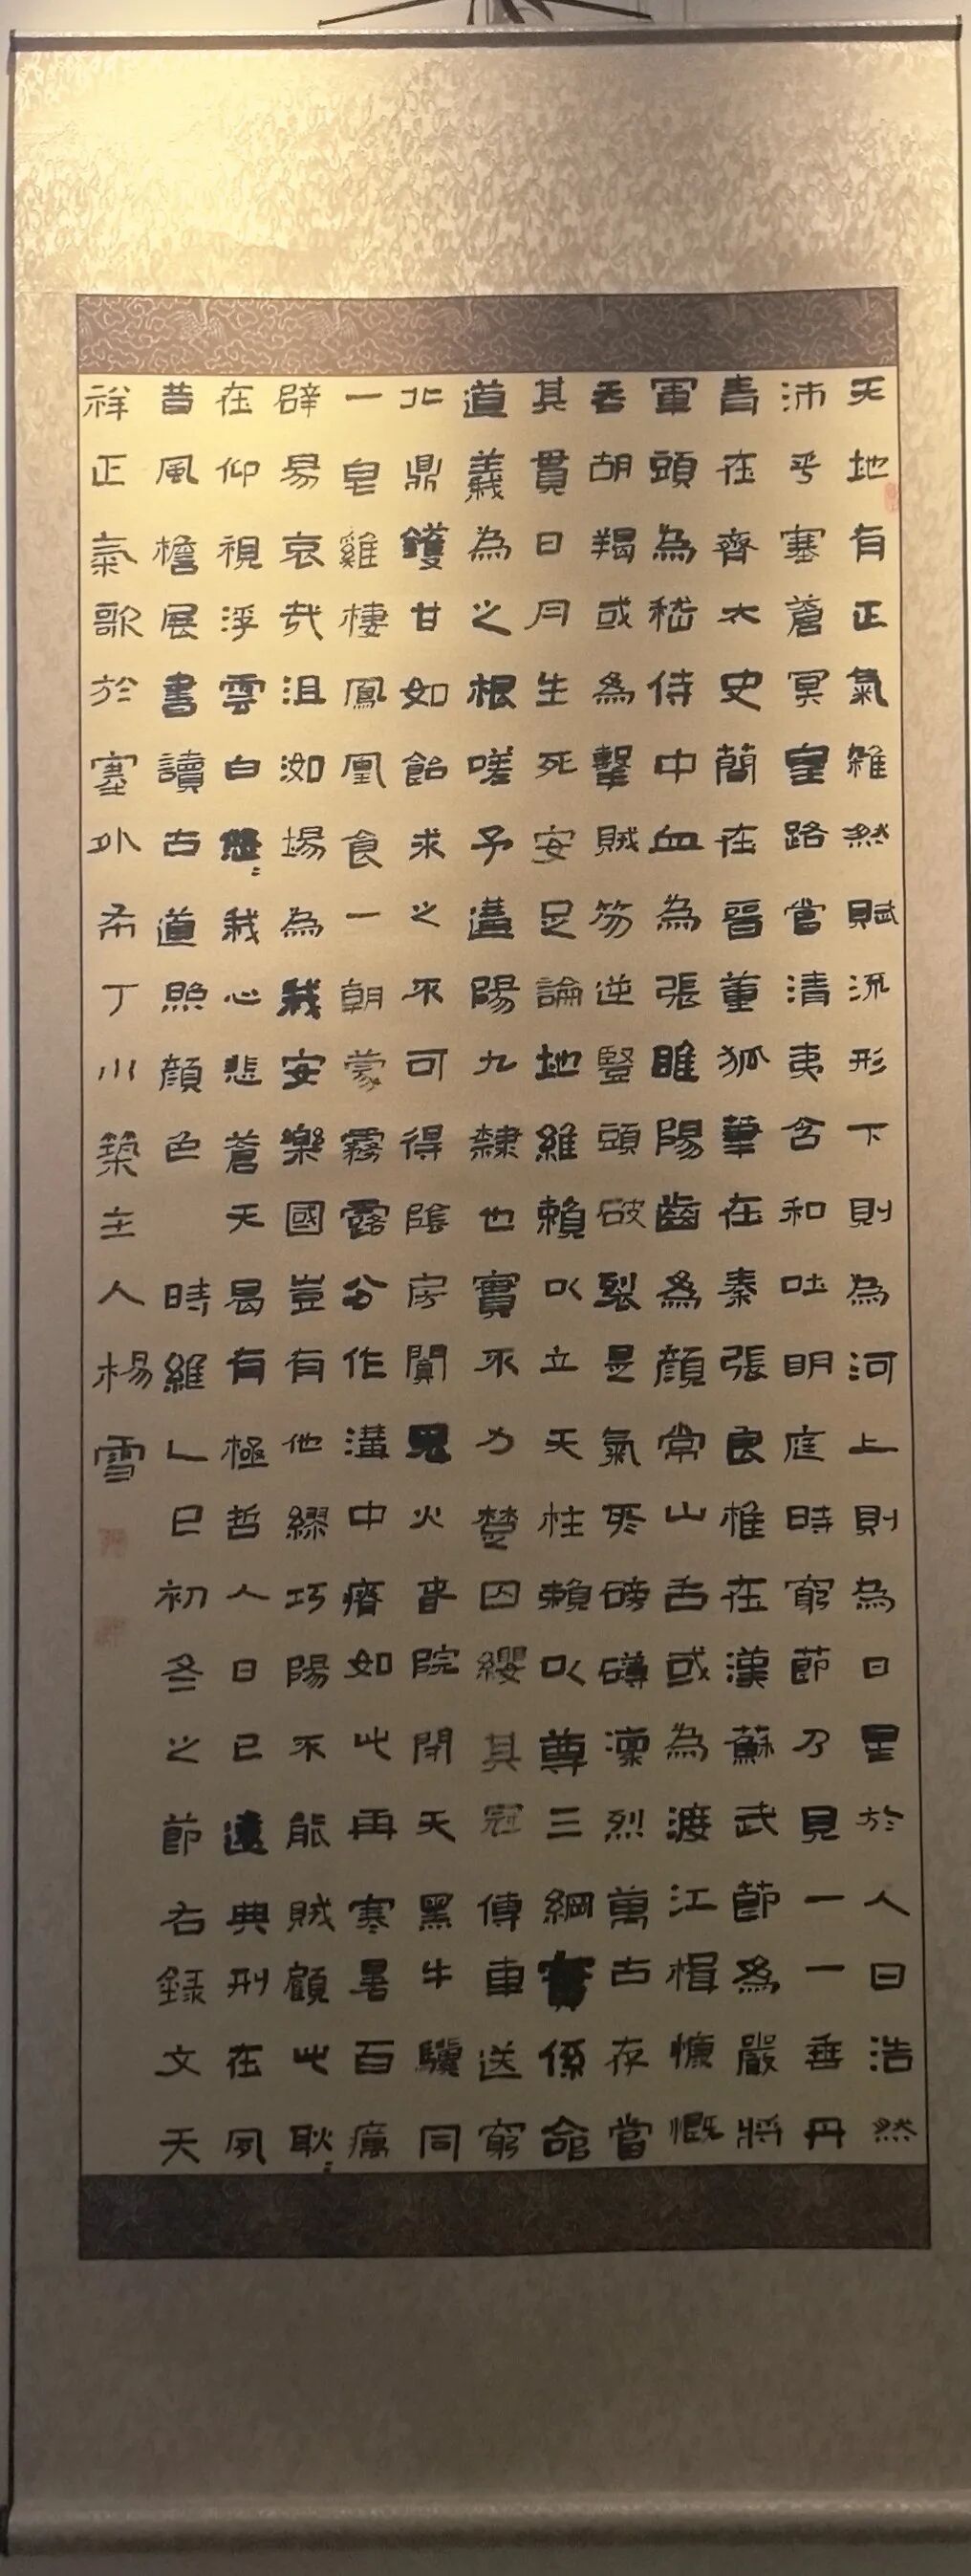 天地有正氣雜然賦流形下則為河上則為日星於人曰浩然
沛乎塞蒼冥皇路當清夷含和吐明庭時窮節乃見一一垂丹
青在齊太史簡在晉董狐筆在秦張良椎在漢蘇武節為嚴將
軍頭為嵇侍中血為張睢陽齒為顏常山舌或為渡江楫慷慨
吞胡羯或為擊賊笏逆豎頭破裂是氣所磅礴凜烈萬古存當
其貫日月生死安足論地維賴以立天柱賴以尊三綱實係命
道義為之根嗟予遘陽九隸也實不力楚囚纓其冠傳車送窮
北鼎鑊甘如飴求之不可得陰房闃鬼火春院閉天黑牛驥同
一皂雞棲鳳凰食一朝蒙霧露分作溝中瘠如此再寒暑百癘
辟易哀哉沮洳場為我安樂國豈有他繆巧陽不能賊顧此耿〻
在仰視浮雲白悠〻我心悲蒼天曷有極哲人日已遠典刑在夙
昔風檐展書讀古道照顏色 時維乙巳初冬之節右錄文天
祥正氣歌於塞外希丁川築主人楊雪